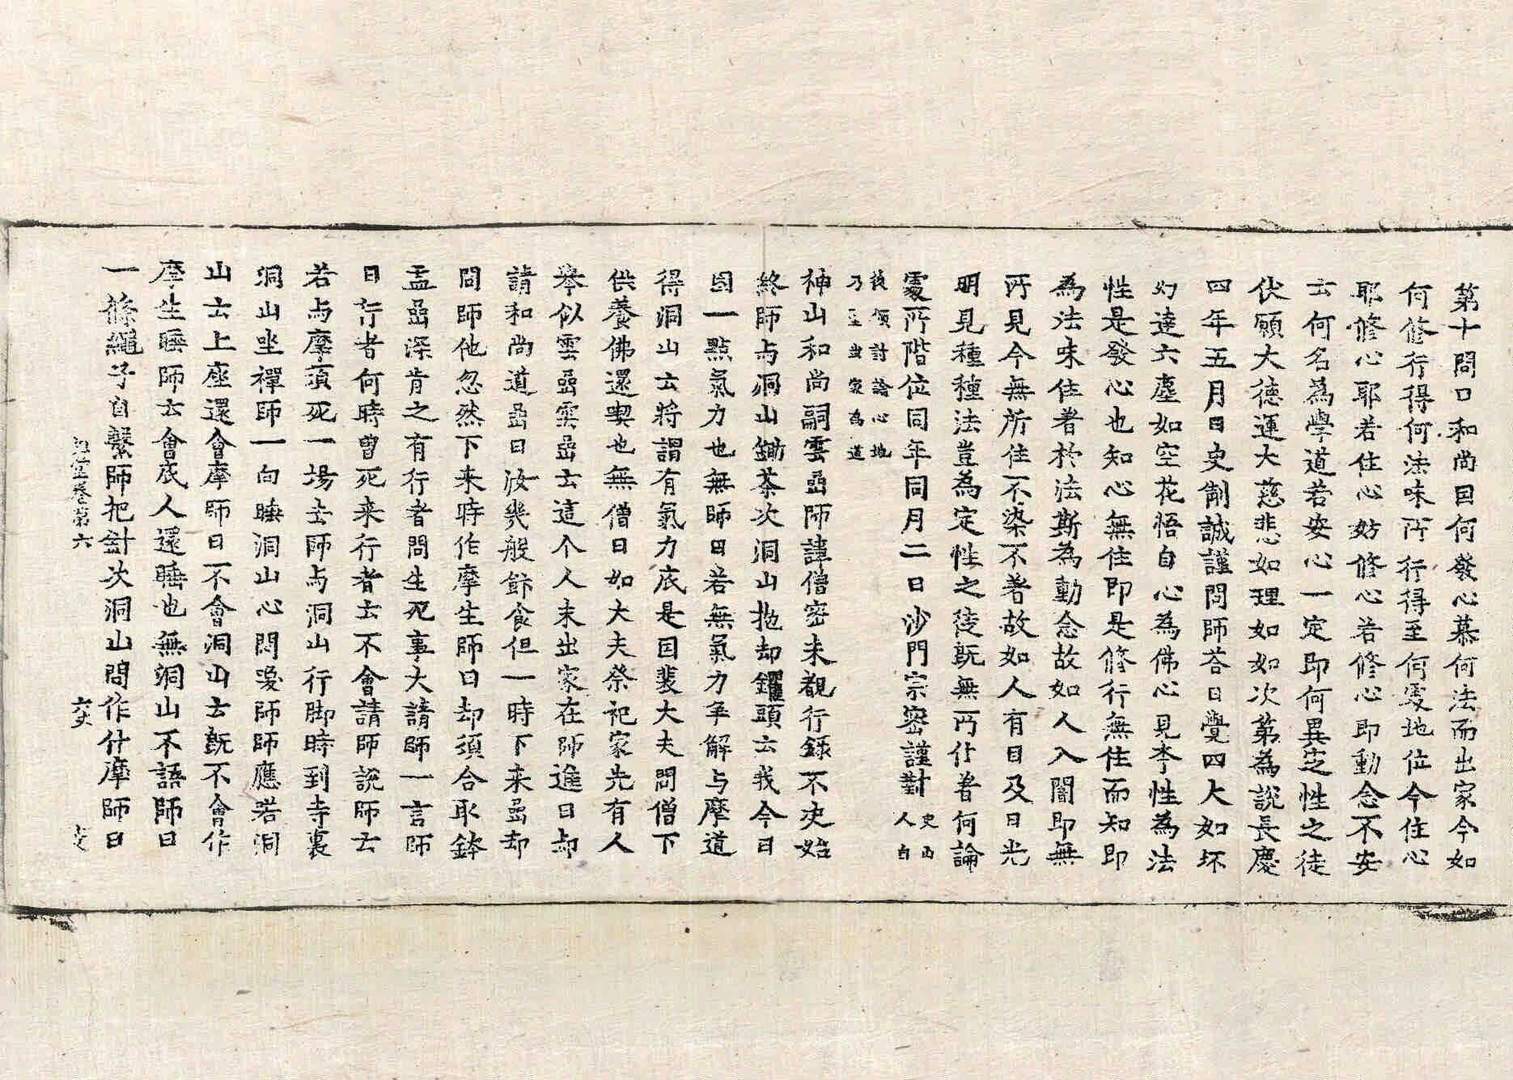 第十問曰和尚因何發心慕何法而出家今如
何修行得何法味所行得至何處地位今住心
耶修心耶若住心妨修心若修心即動念不安
云何名為學道若安心一定即何異定性之徒
伏願大德運大慈悲如理如如次第為說長慶
四年五月日史制誠謹問師荅曰覺四大如坏
幻達六塵如空花悟自心為佛心見本性為法
性是發心也知心無住即是修行無住而知即
為法味住著於法斯為動念故如人入闇即無
所見今無所住不染不著故如人有目及日光
明見種種法豈為定性之徒旣無所住著何論
處所階位同年同月二日沙門宗密謹對
史山人自
後領討論心地
乃至出家為道
神山和尚嗣雲嵒師諱僧密未覩行錄不决始
終師与洞山鋤茶次洞山抛却钁頭云我今日
困一點氣力也無師曰若無氣力爭解与摩道
得洞山云將謂有氣力底是因裴大夫問僧下
供養佛還喫也無僧曰如大夫祭祀家先有人
舉似雲嵒雲嵒云這个人未出家在師進曰却
請和尚道嵒曰汝幾般飰食但一時下来嵒却
問師他忽然下来時作摩生師曰却須合取鉢
盂嵒深肯之有行者問生死事大請師一言師
曰行者何時曾死来行者云不會請師說師云
若与摩湏死一場去師与洞山行脚時到寺裏
洞山坐禪師一向睡洞山心悶喚師師應若洞
山云上座還會摩師曰不會洞山云旣不會作
摩生睡師云會底人還睡也無洞山不語師曰
一條繩子自繫師把針次洞山問作什摩師曰
祖堂卷第六